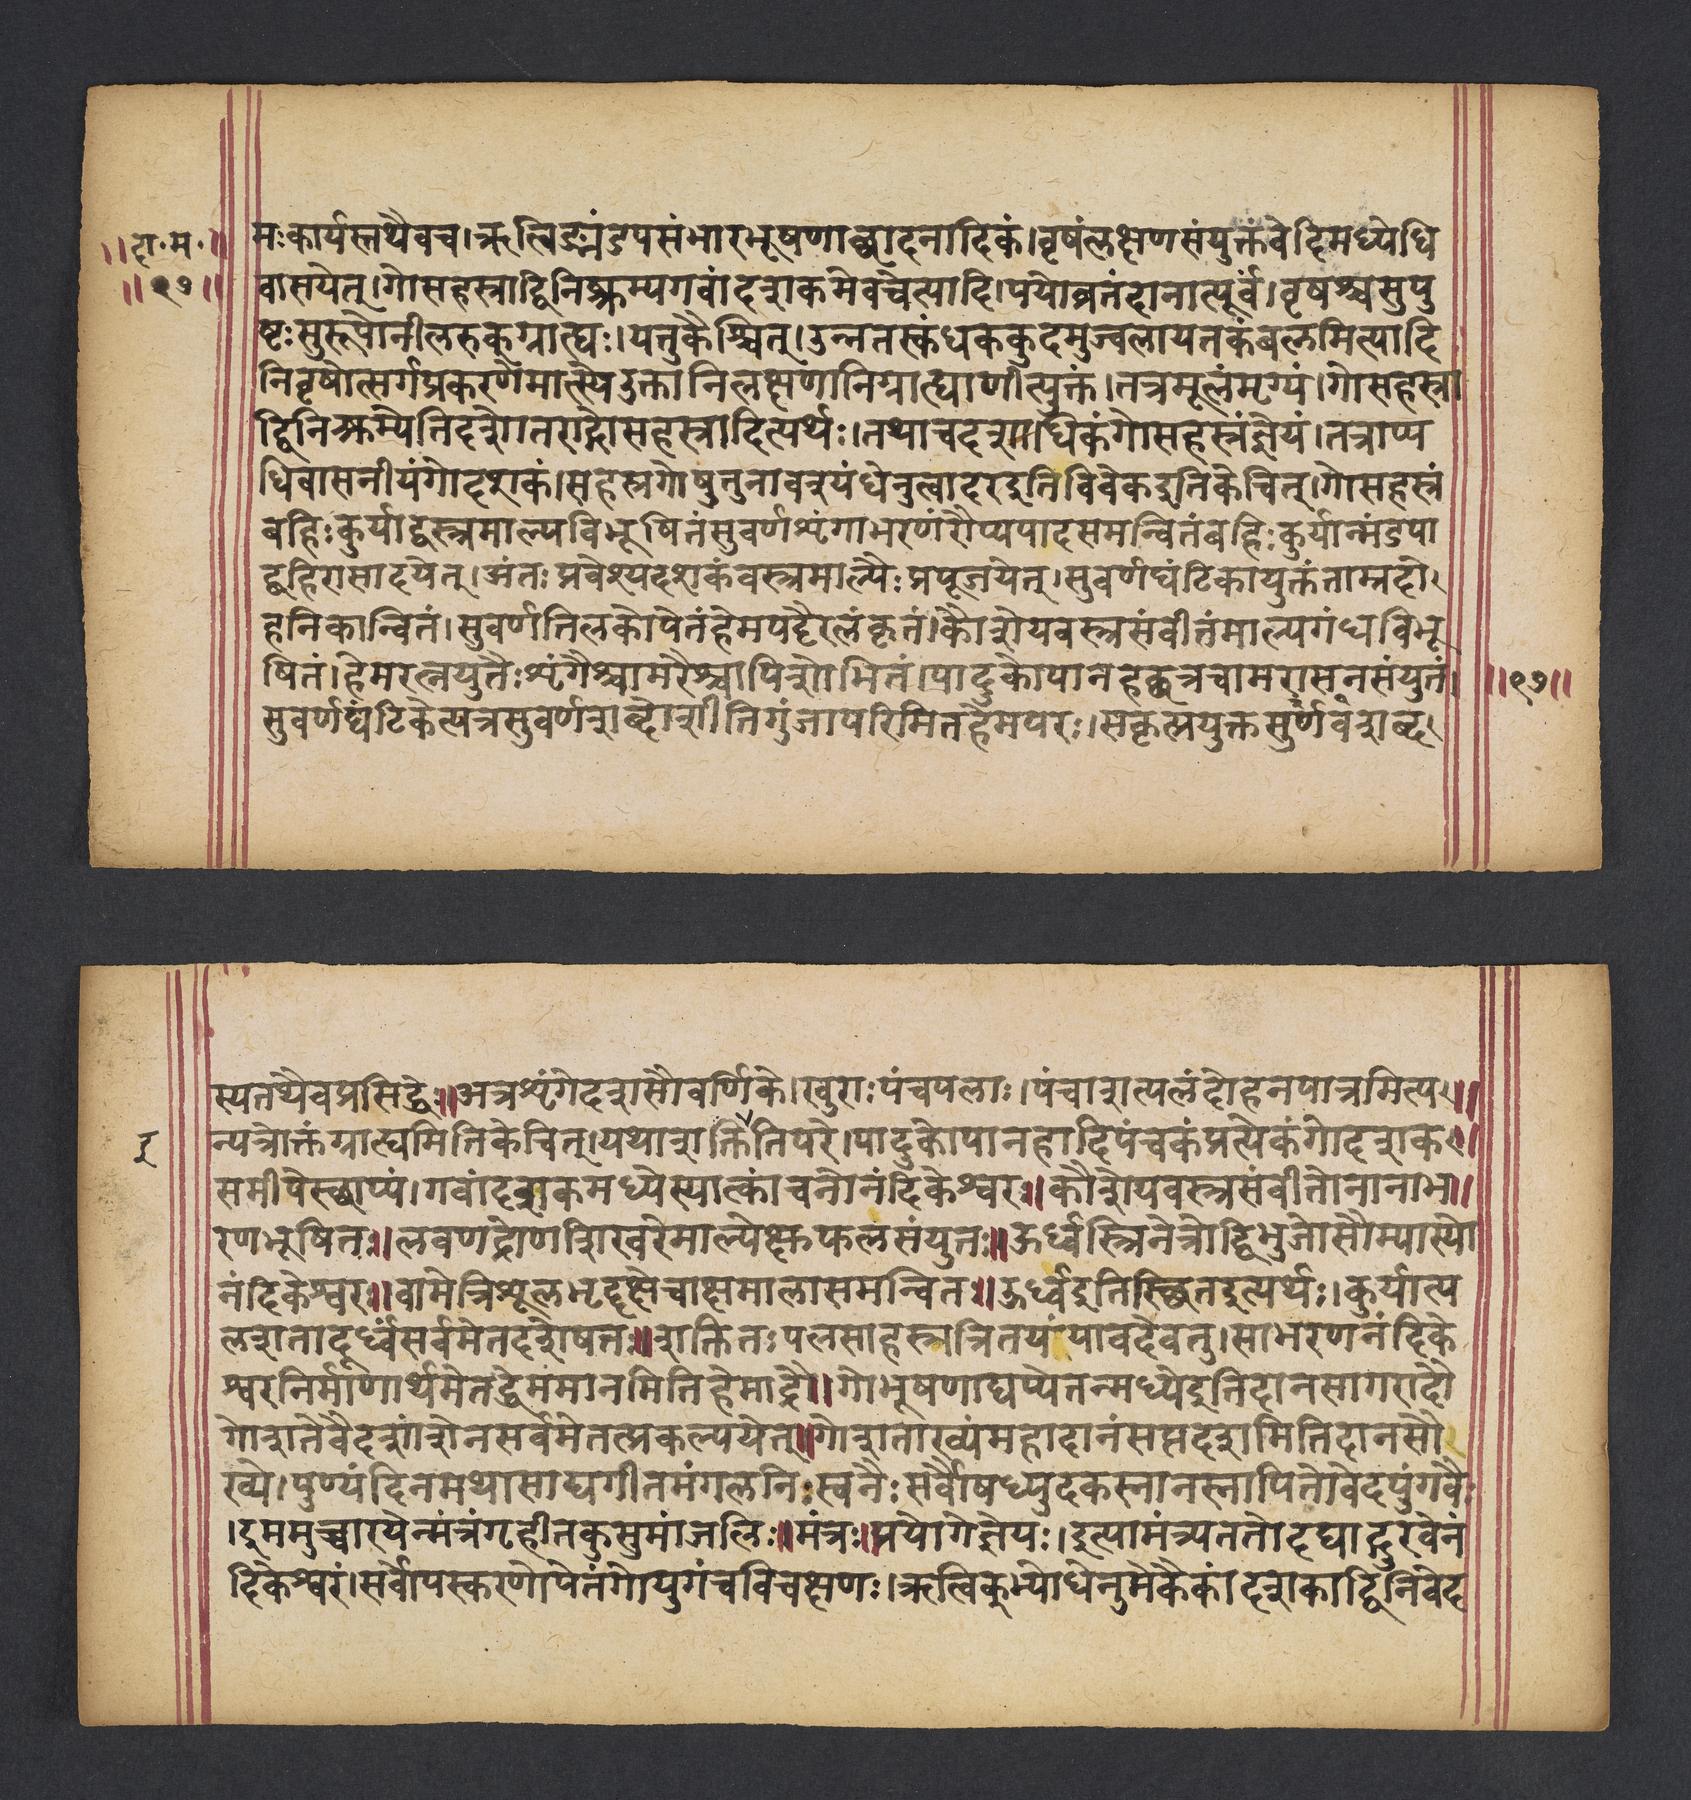 ॥दा॰म॰॥
॥९७॥
मःकार्यस्तथैवच।ऋत्विङ्मंडपसंभारभूषणाछादनादिकं।वृषंलक्षणसंयुक्तंवेदिमध्येधि
वासयेत्।गोसहस्राद्विनिष्क्रम्यगवांदशकमेवचेत्यादि।पयोव्रतंदानात्पूर्वं।वृषश्चसुपु
ष्टःसुरूपोनीलरुकग्रात्द्यः।यत्तुकैश्चित्।उन्नतस्कंधककुदमुज्वलायतकंबलमित्यादि
निवृषोत्सर्गप्रकरणेमात्स्येउक्तानिलक्षणानिग्रात्द्याणीत्युक्तं।तत्रमूलंमृग्यं।गोसहस्रा
द्विनिष्क्रम्येतिदशेगतराद्गोसहस्रादित्यर्थः।तथाचदशाधिकंगोसहस्रंज्ञेयं।तत्राप्य
धिवासनीयंगोदशकं।सहस्रगोषुतुनावश्यंधेनुत्वादरइतिविवेकइतिकेचित्।गोसहस्रं
बहिःकुर्याद्वस्त्रमाल्यविभूषितंसुवर्णशृंगाभरणंरौप्यपादसमन्वितंबहिःकुर्यान्मंडपा
द्बहिरासादयेत्।अंतःप्रवेश्यदशकंवस्त्रमाल्यैःप्रपूजयेत्।सुवर्णघंटिकायुक्तंताम्रदो।
हनिकान्वितं।सुवर्णतिलकोपेतंहेमपट्टैरलंकृतं।कौशेयवस्त्रसंवीतंमाल्यगंधविभू
षितं।हेमरत्नयुतैःशृंगैश्चामरैश्चापिशोभितं।पादुकोपानहच्छत्रचामरासनसंयुतं। ॥९७॥
सुवर्णघंटिकेत्यत्रसुवर्णशब्दोशीतिगुंजापरिमितहेमपरः।सकृत्प्रयुक्तसुर्णवंशब्द।
स्यतथैवप्रसिद्धेः॥अत्रशृंगेदशसौवर्णिके।खुराःपंचपलाः।पंचाशत्पलंदोहनपात्रमित्य।॥
इ
न्यत्रोक्तंग्रात्द्यमितिकेचित्।यथाशक्तितिपरे।पादुकोपानहादिपंचकंप्रत्येकंगोदशक।॥
समीपेस्छाप्यं।गवांदशकमध्येस्यात्कांचनोनंदिकेश्वरः॥कौशेयवस्त्रसंवीतोनानाभ॥
रणभूषितः॥लवणद्रोणशिखरेमाल्येक्षुफलसंयुतः॥ऊर्ध्वस्त्रिनेत्रोद्विभुजोसौम्यास्यो
नंदिकेश्वरः॥वामेत्रिशूलभृद्दक्षेचाक्षमालासमन्वितः॥ऊर्ध्वइतिस्छितइत्यर्थः।कुर्यात्प
लशतादूर्ध्वंसर्वमेतदशेषतः॥शक्तितःपलसाहस्रत्रितयंयावदेवतु।साभरणनंदिके
श्वरनिर्माणार्थमेतद्धेमंमानमितिहेमाद्रौ॥गोभूषणाद्यप्येतन्मध्येइतिदानसागरादौ
गोशतेवैदशांशेनसर्वमेतत्प्रकल्पयेत्॥गोशताख्यंमहादानंसप्तदशमितिदानसौ
ख्ये।पुण्यंदिनमथासाद्यगीतमंगलनिःस्वनैः।सर्वौषध्युदकस्नानस्नापितोवेदपुंगवैः
।इममुच्चारयेन्मंत्रंगृहीतकुसुमांजलिः॥मंत्रः।प्रयोगेज्ञेयः।इत्यामंत्र्यततोदद्याद्गुरवेनं
दिकेश्वरं।सर्वोपस्करणोपेतंगोयुगंचविचक्षणः।ऋत्विक्भ्योधेनुमेकैकांदशकाद्विनिवेद